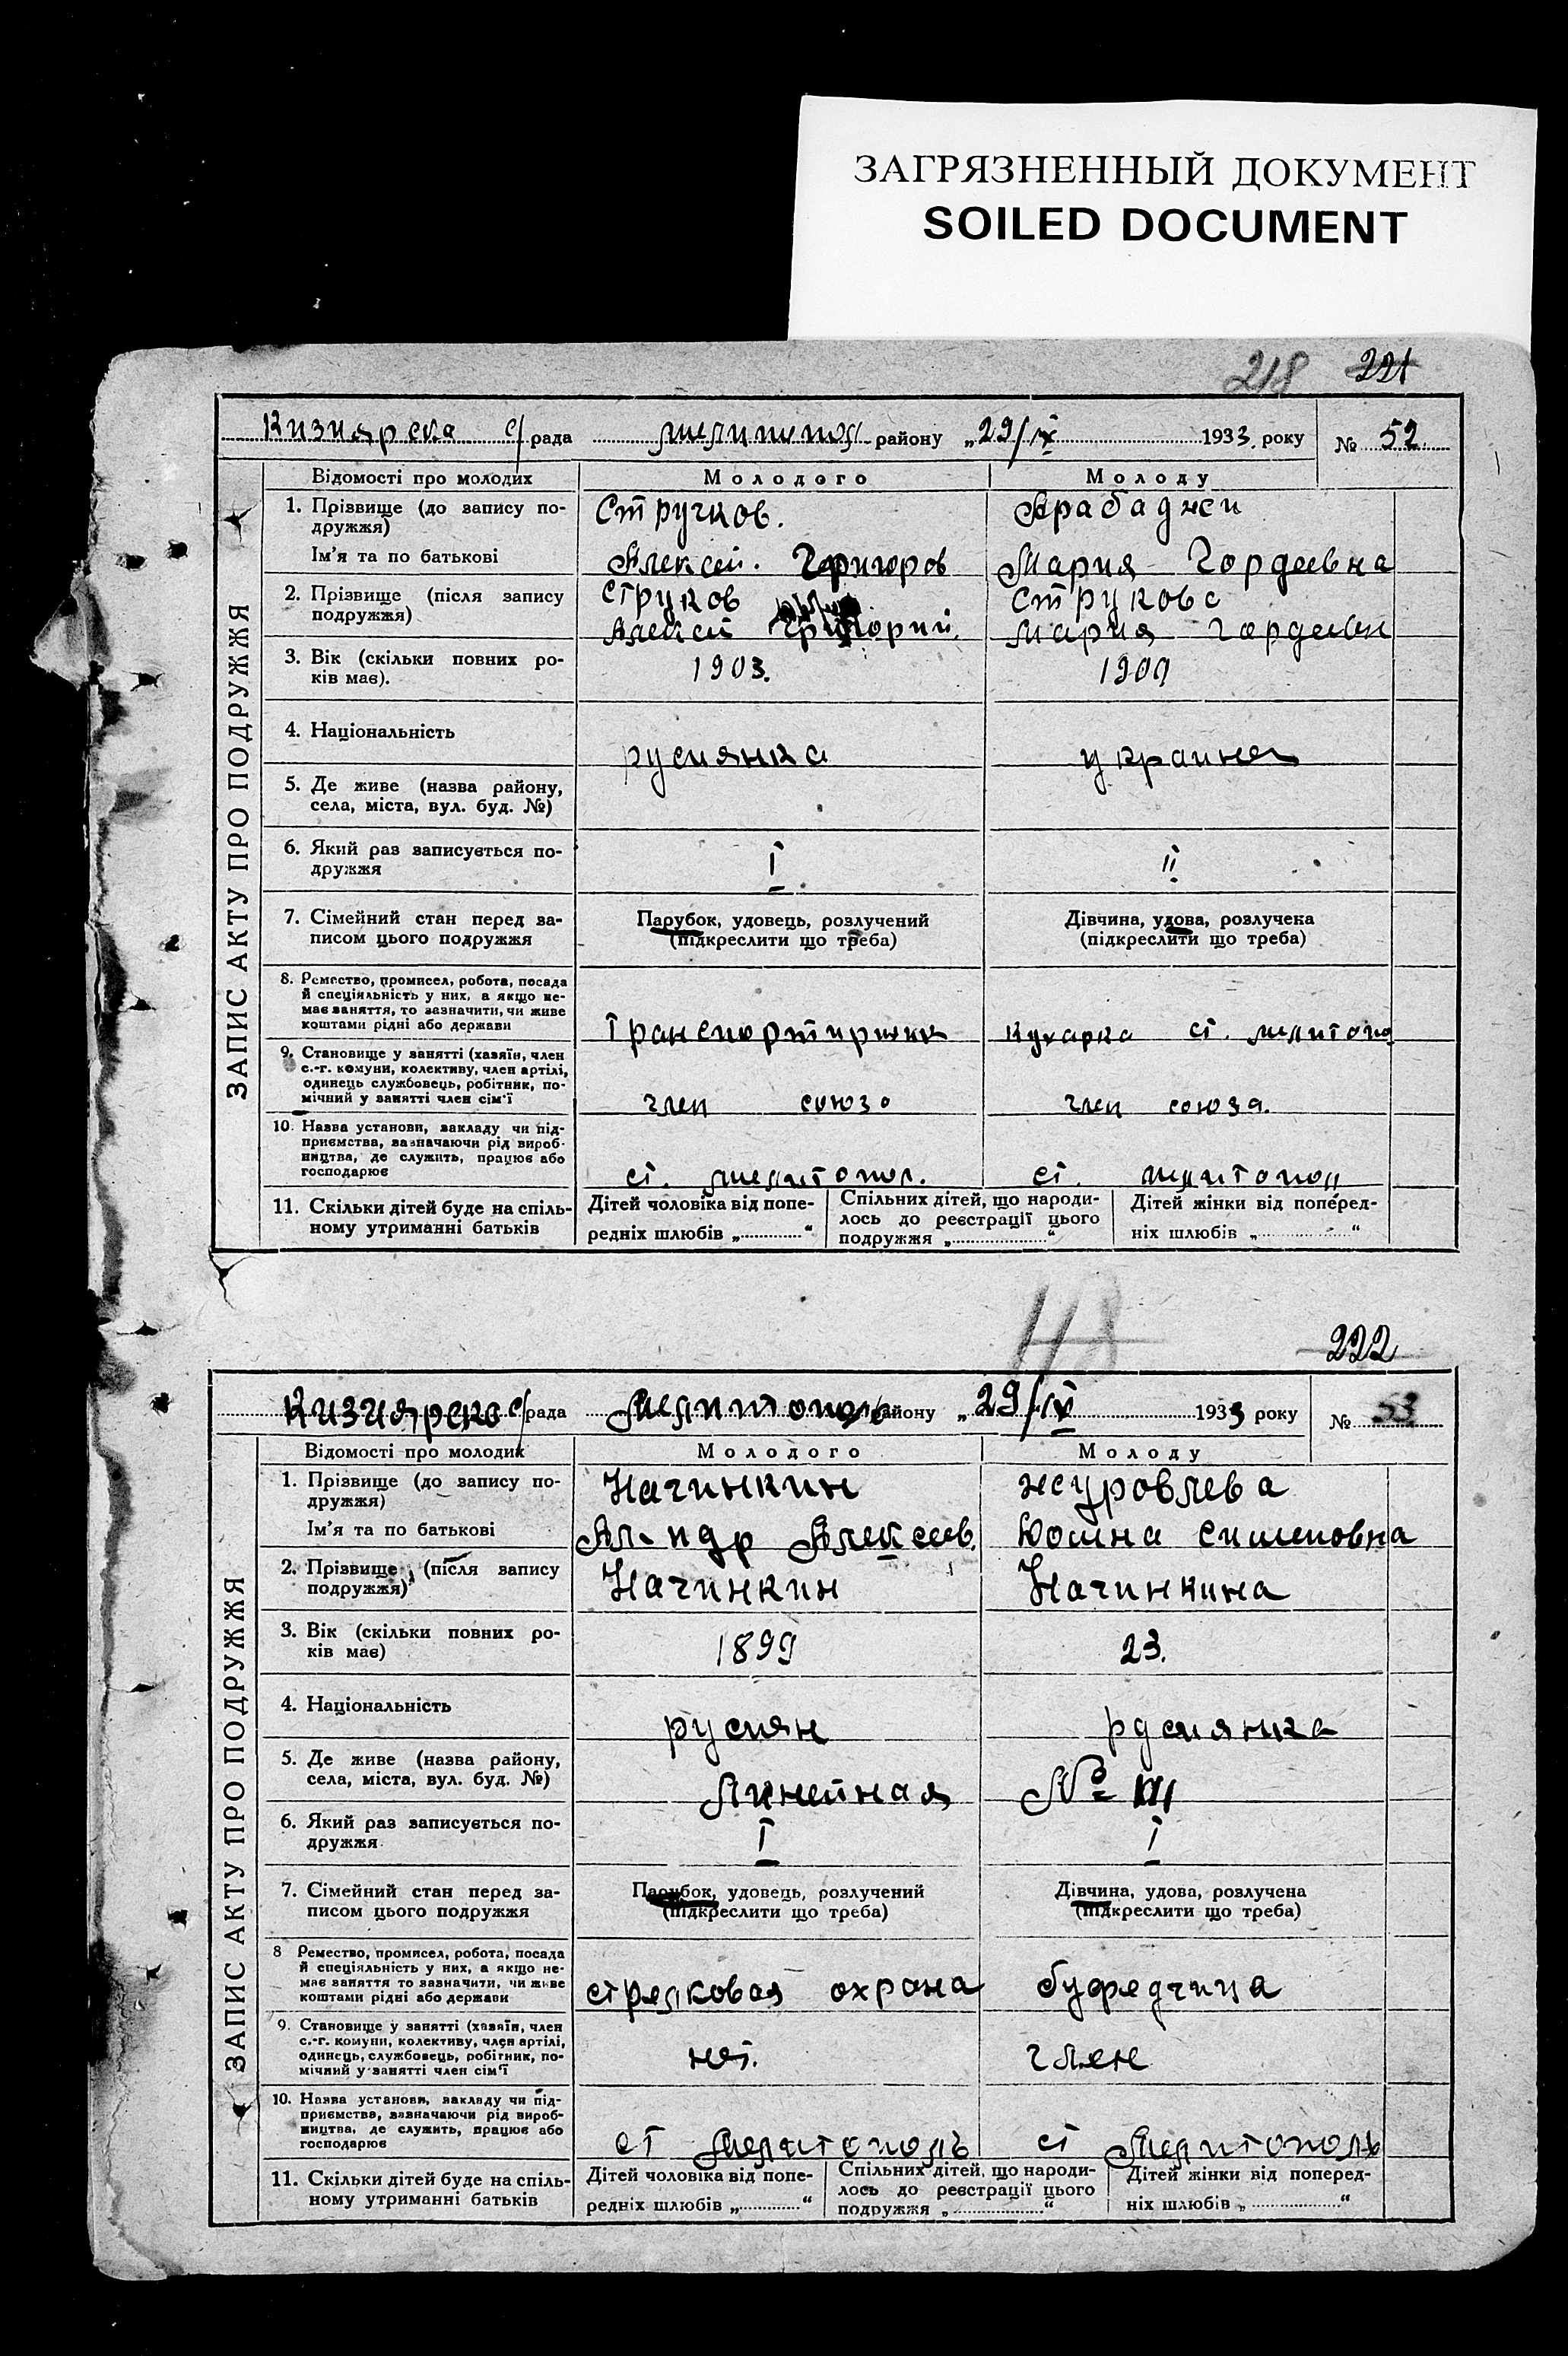 ЗАГРЯЗНЕННЫЙ ДОКУМЕНТ
SOILED DOCUMENT
218 221
Кизиярска с/рада Мелитопол району „29/IX 1933. року № 52.
ЗАПИС АКТУ ПРО ПОДРУЖЖЯ
Відомості про молодих Молодого Молоду
1. Прізвище (до запису по- Стручков. Арабаджи
дружжя)
Ім'я та по батькові Алексей. Григоров Мария Гордеевна
2. Прізвище (після запису Струков Струкова
подружжя) Алексей Григорий. Мария Гордеевн
3. Вік (скільки повних ро- 1903. 1909
ків має).
4. Національність русиянка украинка
5. Де живе (назва району,
села, міста, вул. буд. №)
6. Який раз записується по- I II
дружжя
7. Сімейний стан перед за- Парубок, удовець, розлучений Дівчина, удова, розлучена
писом цього подружжя (підкреслити що треба) (підкреслити що треба)
8. Ремество, промисел, робота, посада
й спеціяльність у них, а якщо не-
має заняття, то зазначити, чи живе
коштами рідні або держави Кухарка ст. Мелитопо
9. Становище у занятті (хазяїн, член
с.-г. комуни, колективу, член артілі,
одинець службовець, робітник, по-
мічний у занятті член сім'ї член союзо член союза.
10. Назва установи, закладу чи під-
приємства, зазначаючи рід вироб-
ництва, де служить, працює або
господарює ст. Мелитопол. ст. Мелитопол
11. Скільки дітей буде на спіль- Дітей чоловіка від попе- Спільних дітей, що народи- Дітей жінки від поперед-
ному утриманні батьків редніх шлюбів „ “ лось до реєстрації цього ніх шлюбів „ “
подружжя „ “
118
222
Кизиярско с/рада Мелитополь району „29/IX 1933 року № 53
ЗАПИС АКТУ ПРО ПОДРУЖЖЯ
Відомості про молодих Молодого Молоду
1. Прізвище (до запису по- Начинкин Журовлева
дружжя)
Ім'я та по батькові Ал-ндр Алексеев. Сименовна
2. Прізвище (після запису Начинкин Начинкина
подружжя)
3. Вік (скільки повних ро- 1899 23.
ків має)
4. Національність русиян русиянка
5. Де живе (назва району,
села, міста, вул. буд. №) Линейная №
6. Який раз записується по- I I
дружжя
7. Сімейний стан перед за- Парубок, удовець, розлучений Дівчина, удова, розлучена
писом цього подружжя (підкреслити що треба) (підкреслити що треба)
8 Ремество, промисел, робота, посада
й спеціяльність у них, а якщо не-
має заняття то зазначити, чи живе
коштами рідні або держави стрелковая охрана буфедчица
9. Становище у занятті (хазяїн, член
с.-г. комуни, колективу, член артілі,
одинець, службовець, робітник, по- нет. член
мічний у занятті член сім'ї
10. Назва установи, закладу чи під-
приємства, зазначаючи рід вироб-
ництва, де служить, працює або
господарює ст Мелитополь ст Мелитополь
11. Скільки дітей буде на спіль- Дітей чоловіка від попе- Спільних дітей, що народи- Дітей жінки від поперед-
ному утриманні батьків редніх шлюбів „ “ лось до реєстрації цього ніх шлюбів „ “
подружжя „ “